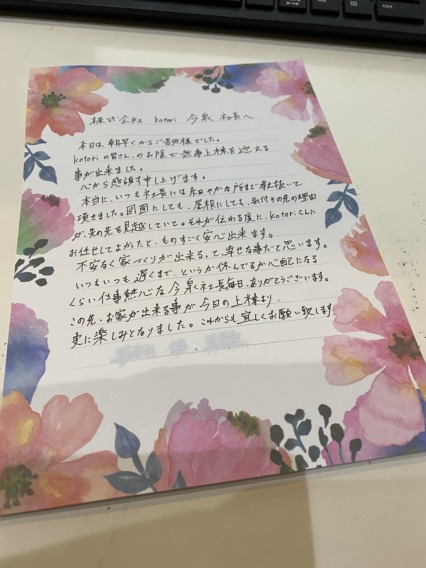 株式会社 kotori 今泉 社長へ
本日は、朝早くからご苦労様でした。
kotoriの皆さんのお陰で無事上棟を迎える
事が出来ました。
心から感謝申し上げます。
本当に、いつも社長には細やかな所まで教え抜いて
頂きました。図面にしても、屋根にしても、取付きの先の理由
が、先の先を見越していて。それが伝わる度に、kotoriさんに
お任せしてよかったと、ものすごく安心出来ます。
不安なく家づくりが出来るって、幸せな事だと思います。
いつもいつも遅くまで、というか休んでるか心配になる
くらい仕事熱心な今泉社長毎日、ありがとうございます。
この先、お家が出来る事が今日の上棟より、
更に楽しみとなりました。これからも宜しくお願い致します